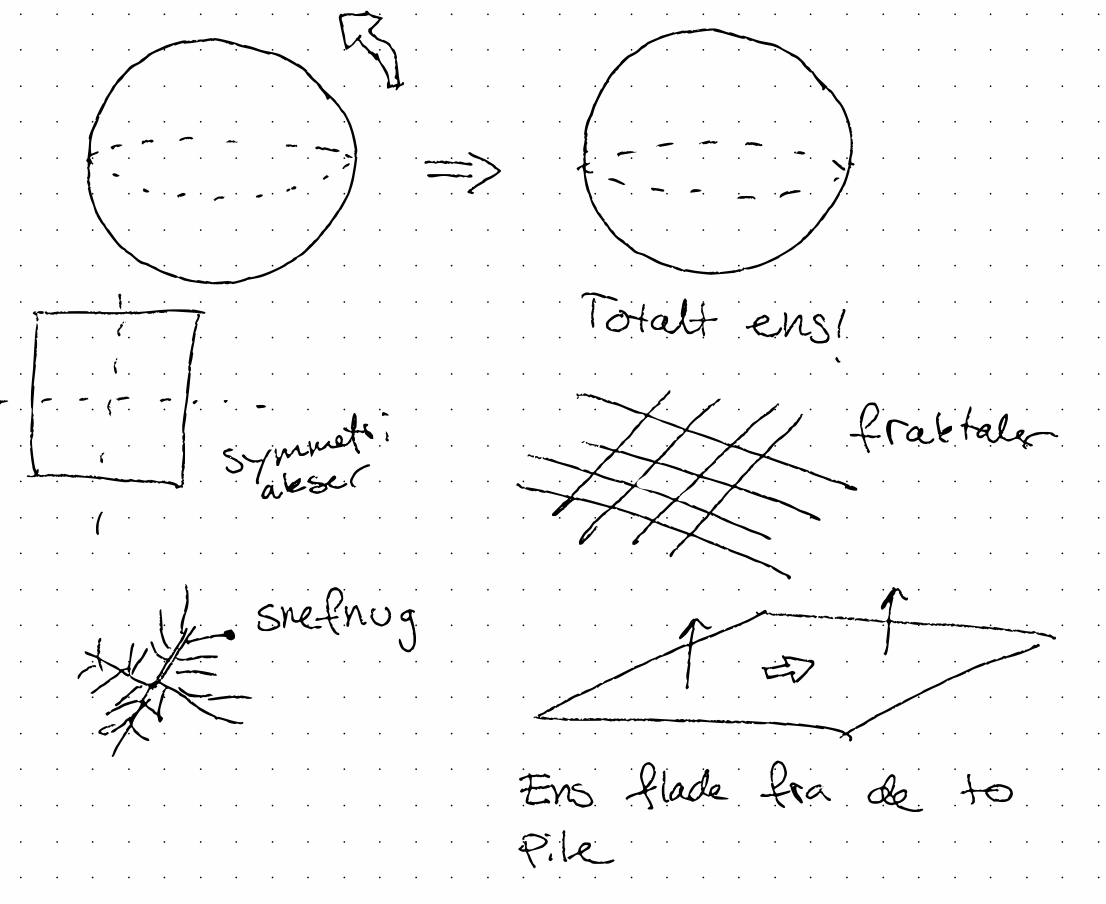 Totalt ens!
symmetri
akser
fraktaler
snefnug
Ens flade fra de to
pile